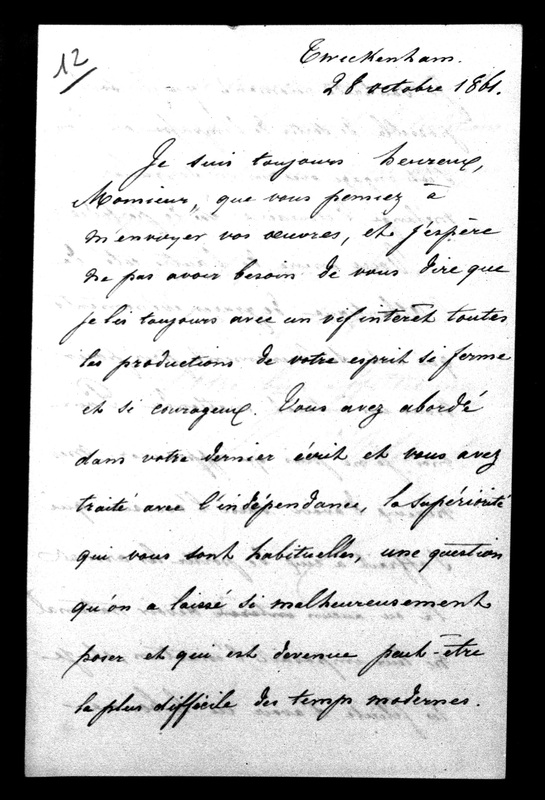 12
Twickenham.
28 octobre 1861.
Je suis toujours heureux,
Monsieur, que vous pensiez à
m'envoyer vos œuvres, et j'espère
ne pas avoir besoin de vous dire que
je lis toujours avec un vif intérêt toutes
les productions de votre esprit si ferme
et si courageux. Vous avez abordé
dans votre dernier écrit et vous avez
traité avec l'indépendance, la supériorité
qui vous sont habituelles, une question
qu'on a laissé si malheureusement
poser et qui est devenue peut-être
la plus difficile des temps modernes.